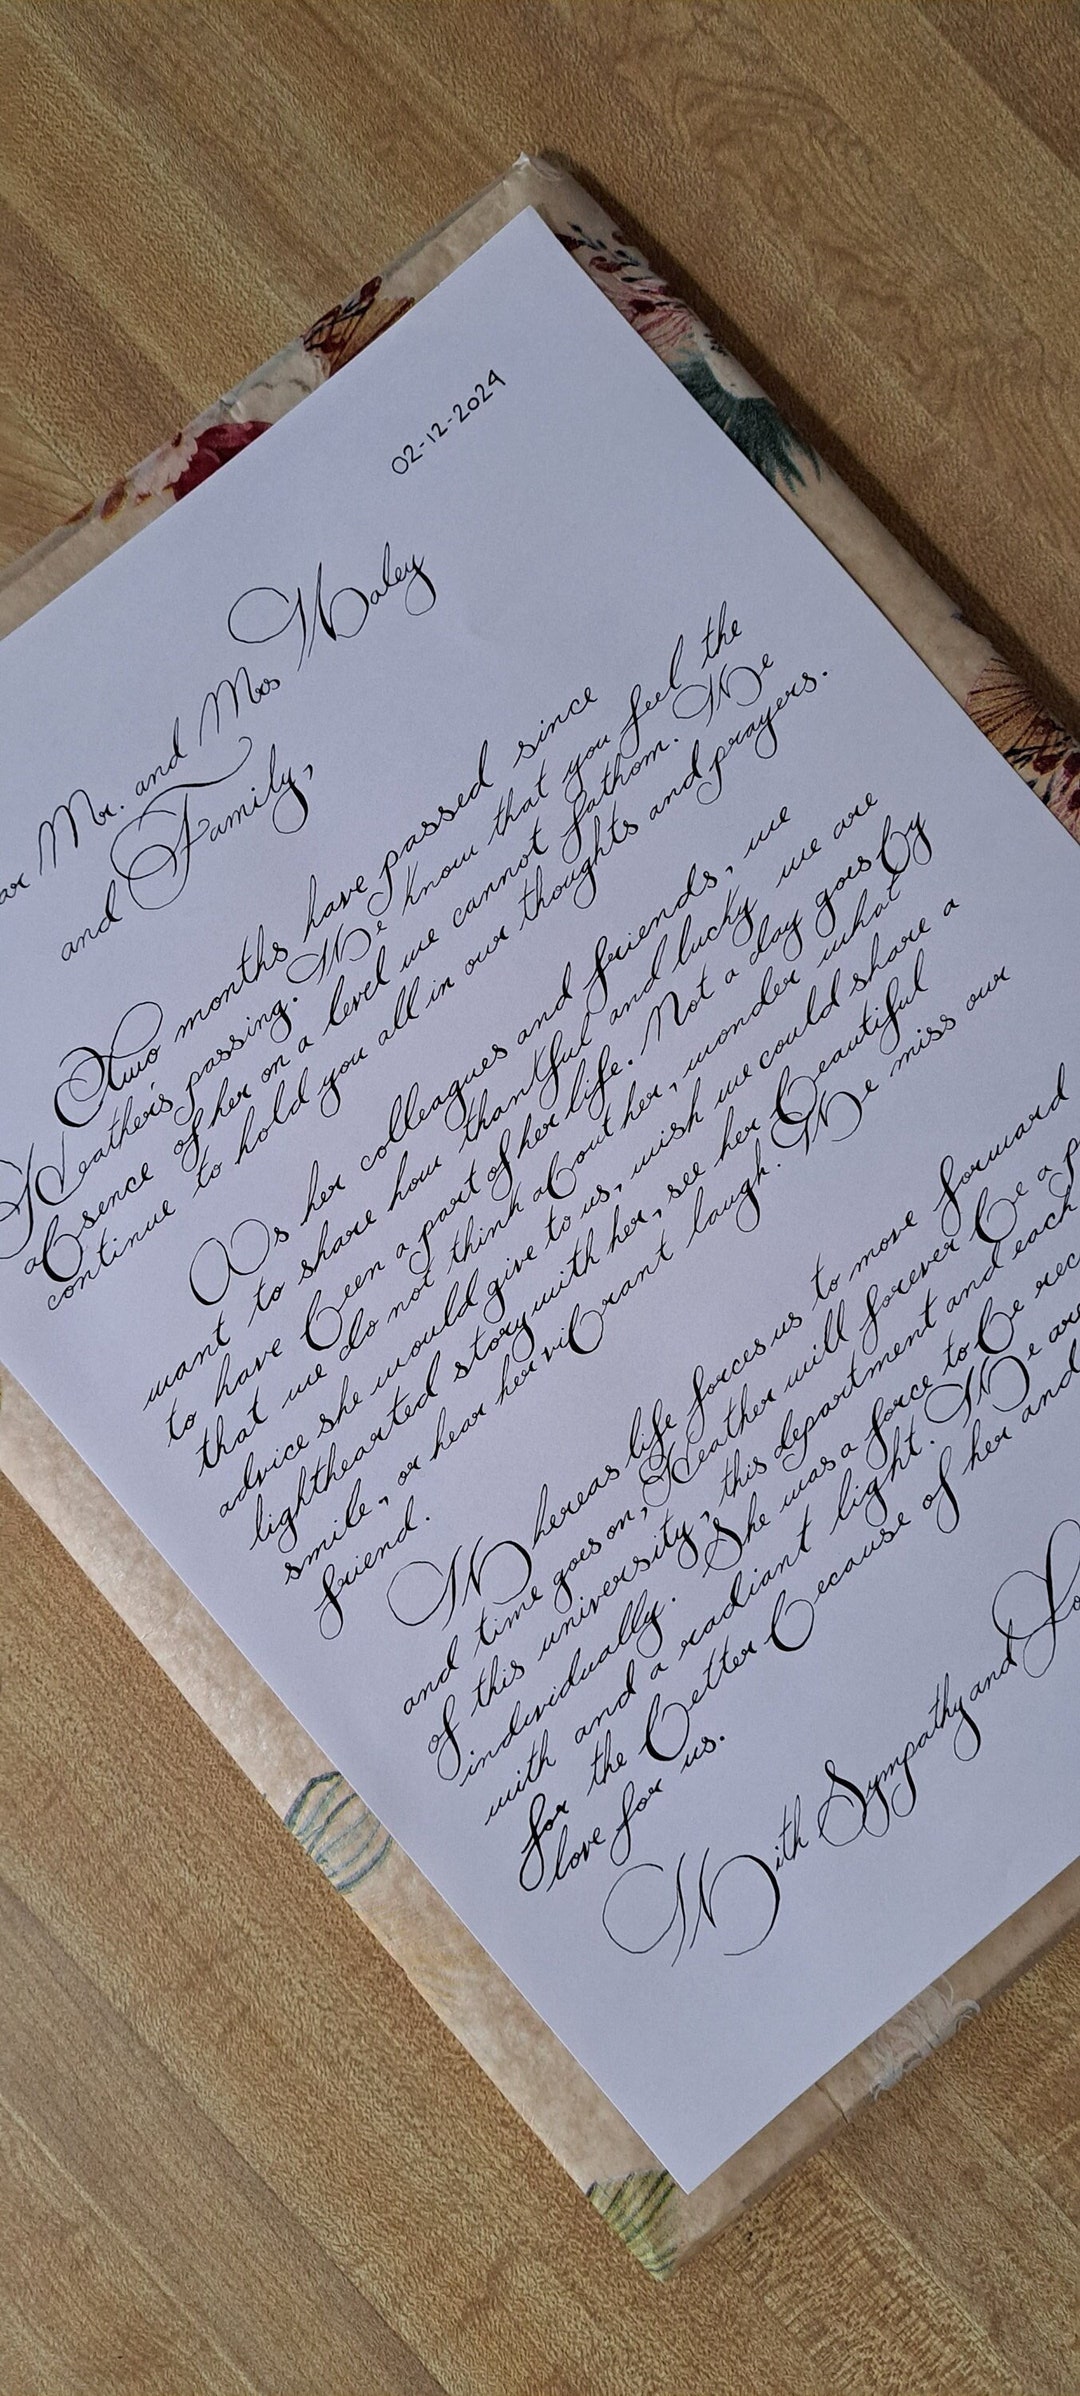 02-12-2024
Mr. and Mrs
and Family,
Two months have passed since
Heather's passing. We know that you feel the
absence of her on a level we cannot fathom. We
continue to hold you all in our thoughts and prayers.
As her colleagues and friends, we
want to share how thankful and lucky we are
to have been a part of her life. Not a day goes by
that we do not think about her, wonder what
advice she would give to us, wish we could share a
lighthearted story with her, see her beautiful
smile, or hear her vibrant laugh. We miss our
friend.
Whereas life forces us to move forward
and time goes on, Heather will forever be a
of this university, this department and each
individually. She was a force to be
with and a radiant light. We
for the better because of her and
love for us.
With Sympathy and